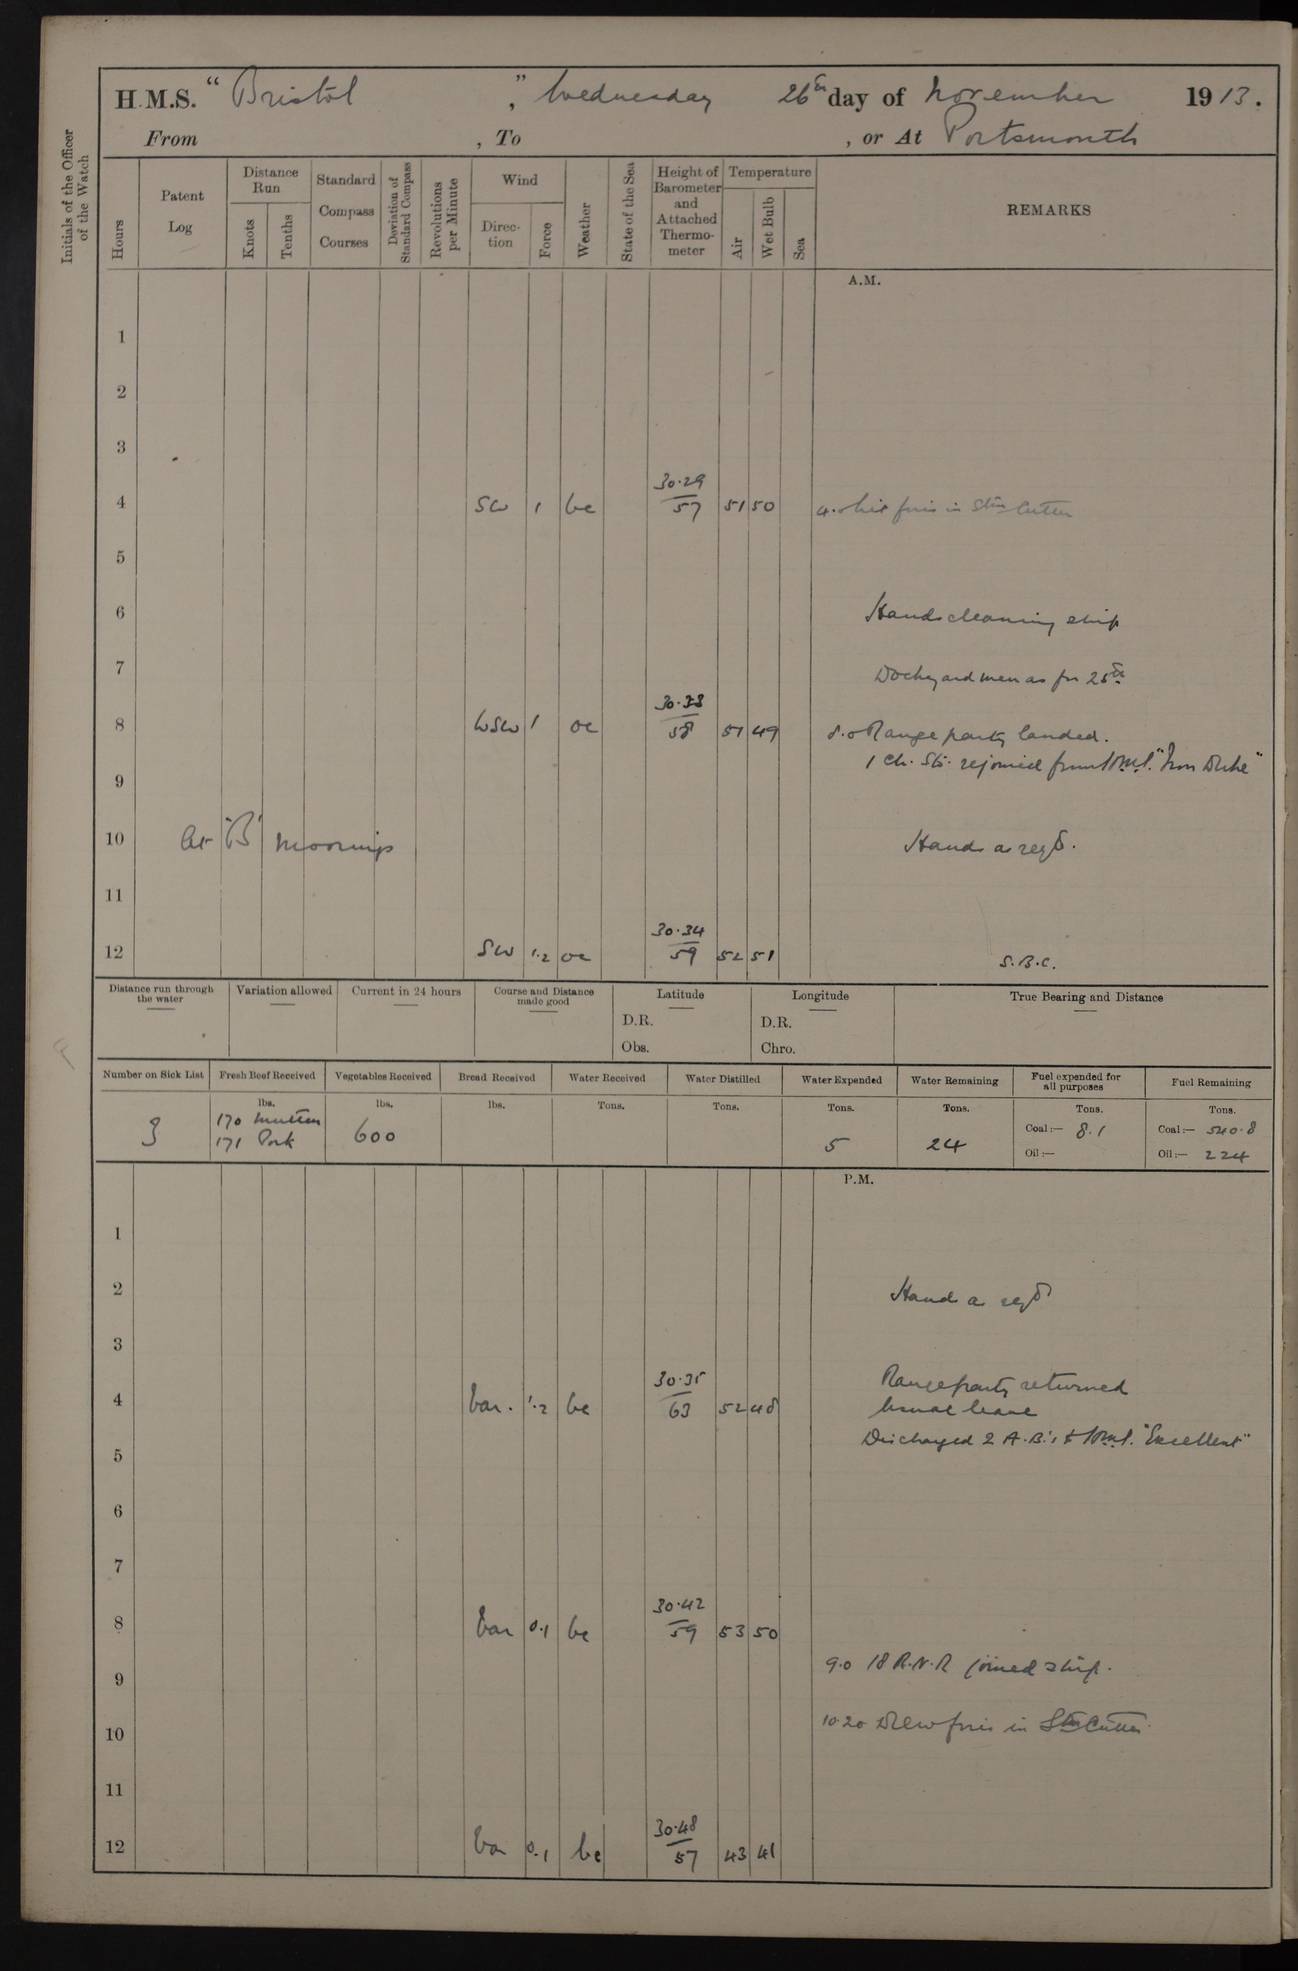 H.M.S. "Bristol", Wednesday 26th day of November 1913.
From , To , or At Portsmouth
Initials of the Officer of the Watch
Hours
Patent Log
Distance Run
Knots
Tenths
Standard Compass Courses
Deviation of Standard Compass
Revolutions per Minute
Wind
Direction
Force
Weather
State of the Sea
Height of Barometer and Attached Thermometer
Temperature
Air
Wet Bulb
Sea
REMARKS
A.M.
1
2
3
4 SW 1 bc 30.29 57 51 50 4.0 Lit fires in Stm Cutter
5
6 Hands cleaning ship
7 Dockyard men as for 25th
8 WSW 1 oc 30.33 58 51 49 8.0 Range party landed.
1 Ch. Sto. rejoined from H.M.S. "Iron Duke"
9
10 At 'B' moorings Hands as reqd.
11
12 SW 1.2 oc 30.34 59 52 51 S.B.C.
Distance run through the water
Variation allowed
Current in 24 hours
Course and Distance made good
Latitude
D.R.
Obs.
Longitude
D.R.
Chro.
True Bearing and Distance
Number on Sick List
Fresh Beef Received
Vegetables Received
Bread Received
Water Received
Water Distilled
Water Expended
Water Remaining
Fuel expended for all purposes
Fuel Remaining
lbs. lbs. lbs. Tons. Tons. Tons. Tons. Tons. Tons.
3 170 Mutton 600 5 24 Coal:— 8.1 Coal:— 540.8
171 Pork Oil:— Oil:— 224
P.M.
1
2 Hands as reqd
3
4 Var. 1.2 bc 30.35 63 52 48 Range party returned
Usual leave
Discharged 2 A.B.'s to H.M.S. "Excellent"
5
6
7
8 Var 0.1 bc 30.42 59 53 50
9.0 18 R.N.R joined ship.
9
10.20 Drew fires in Stm Cutter.
10
11
12 Var 0.1 bc 30.48 57 43 41